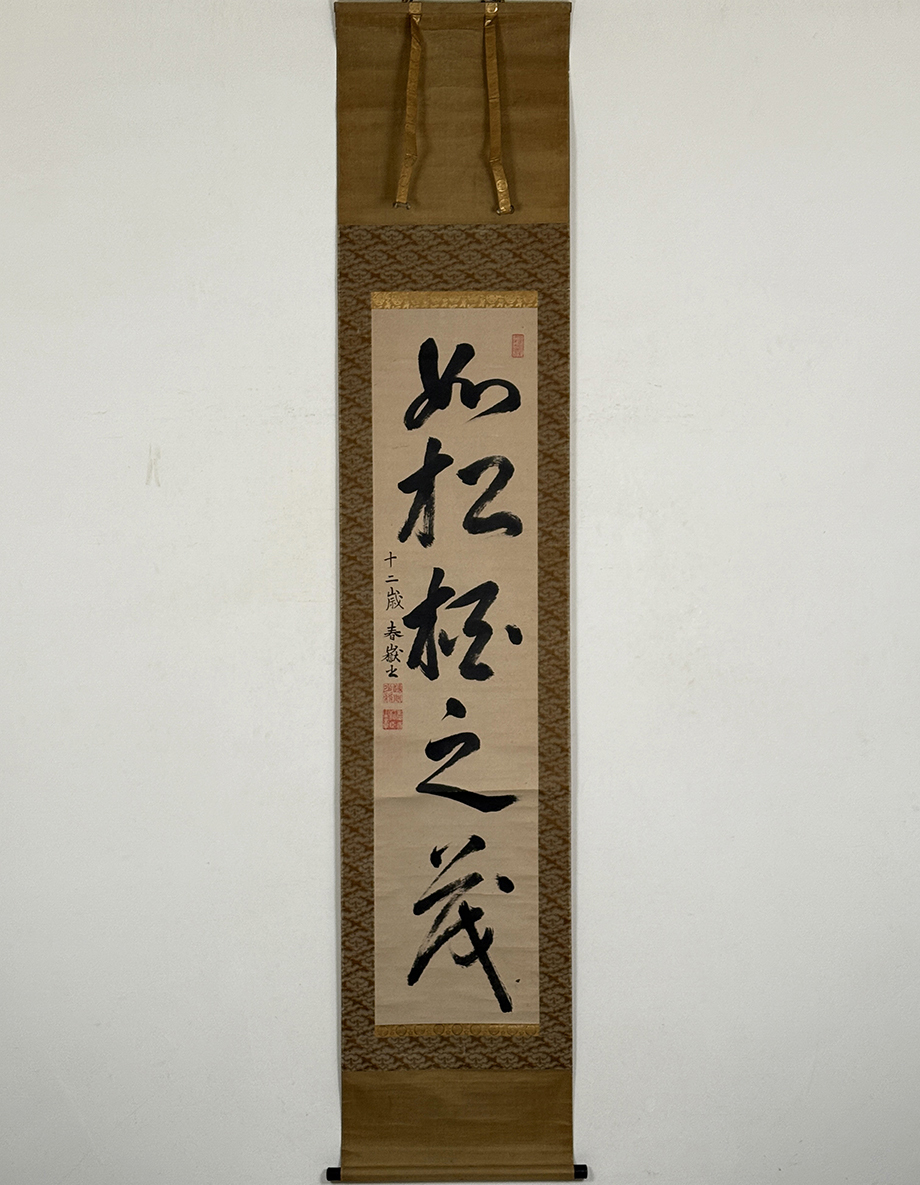 如松柏之茂
十二歳 春嶽書